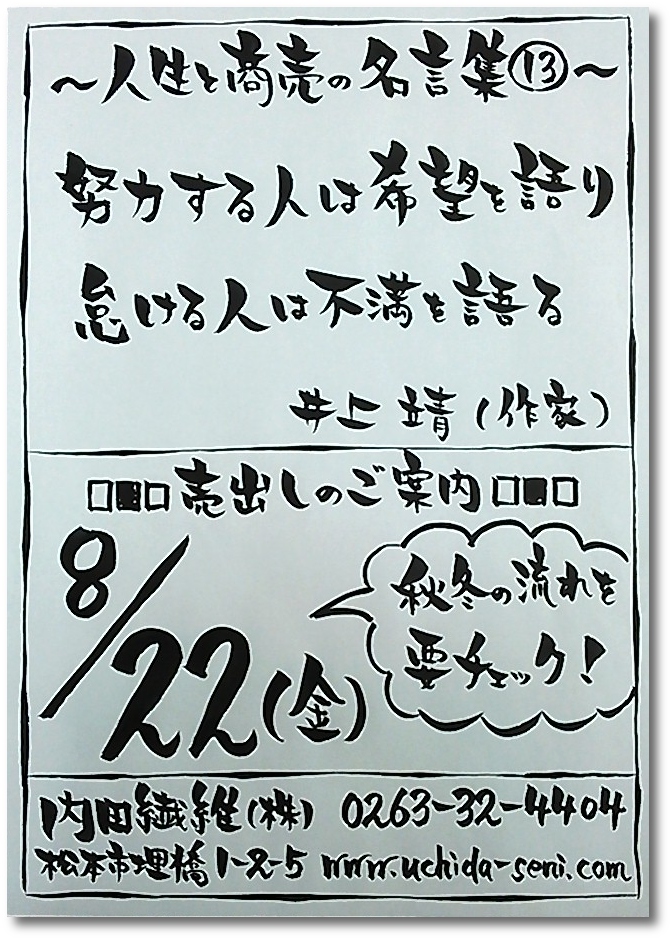 ～人生と商売の名言集⑬～
努力する人は希望を語り
怠ける人は不満を語る
井上 靖（作家）
□■□売出しのご案内□■□
8/22(金)
秋冬の流れを
要チェック！
内田繊維(株) 0263-32-4404
松本市埋橋1-2-5 www.uchida-seni.com